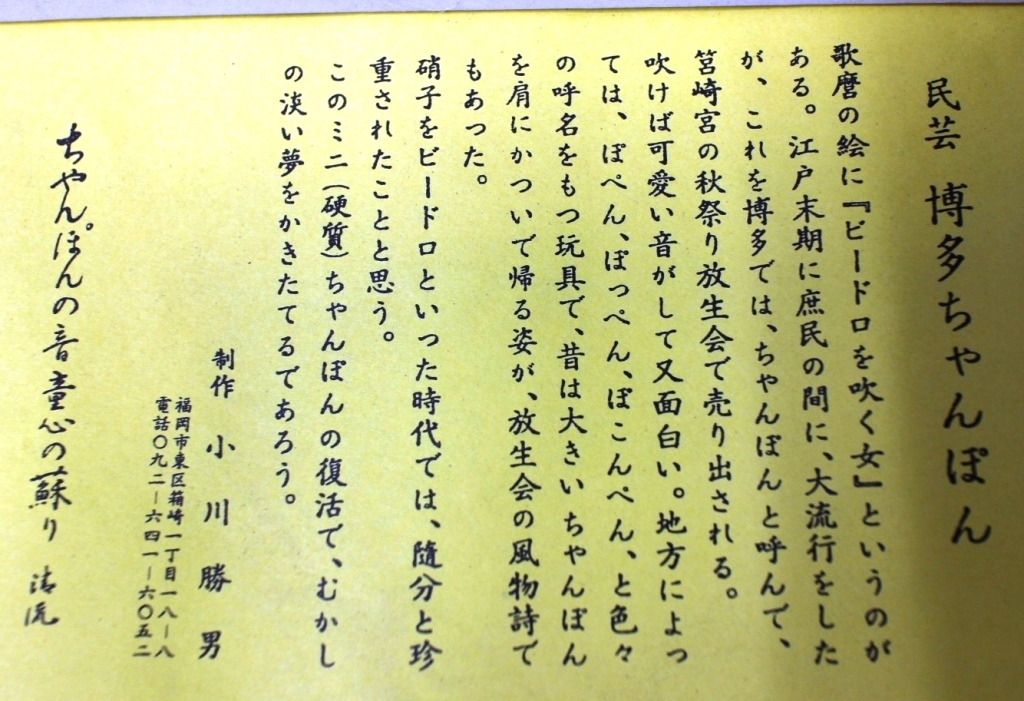 民芸 博多ちゃんぽん
歌麿の絵に『ビードロを吹く女』というのが
ある。江戸末期に庶民の間に、大流行をした
が、これを博多では、ちゃんぽんと呼んで、
筥崎宮の秋祭り放生会で売り出される。
吹けば可愛い音がして又面白い。地方によっ
ては、ぽぺん、ぽっぺん、ぽこんぺん、と色々
の呼名をもつ玩具で、昔は大きいちゃんぽん
を肩にかついで帰る姿が、放生会の風物詩で
もあった。
硝子をビードロといった時代では、随分と珍
重されたことと思う。
このミニ(硬質)ちゃんぽんの復活で、むかし
の淡い夢をかきたてるであろう。
制作 小川勝男
福岡市東区箱崎一丁目一八―八
電話〇九二―六四一―六〇五二
ちゃんぽんの音童心の蘇り 清流